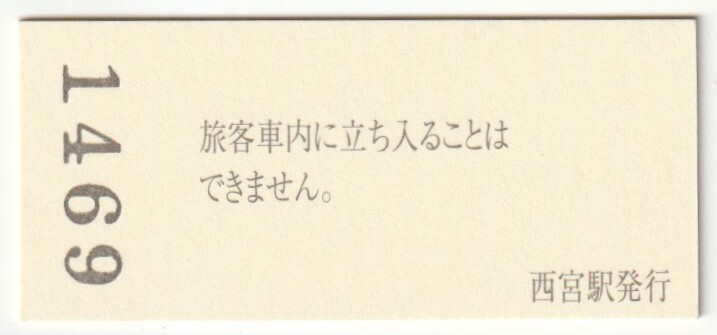 1469
旅客車内に立ち入ることは
できません。
西宮駅発行